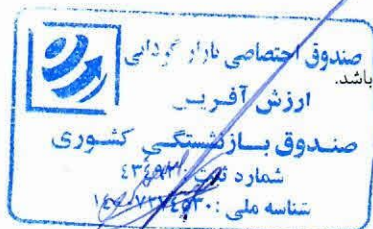 صندوق اختصاصی بازار گردانی
باشد.
ارزش آفرین
صندوق بازنشستگی کشوری
شماره ثبت:
شناسه ملی: